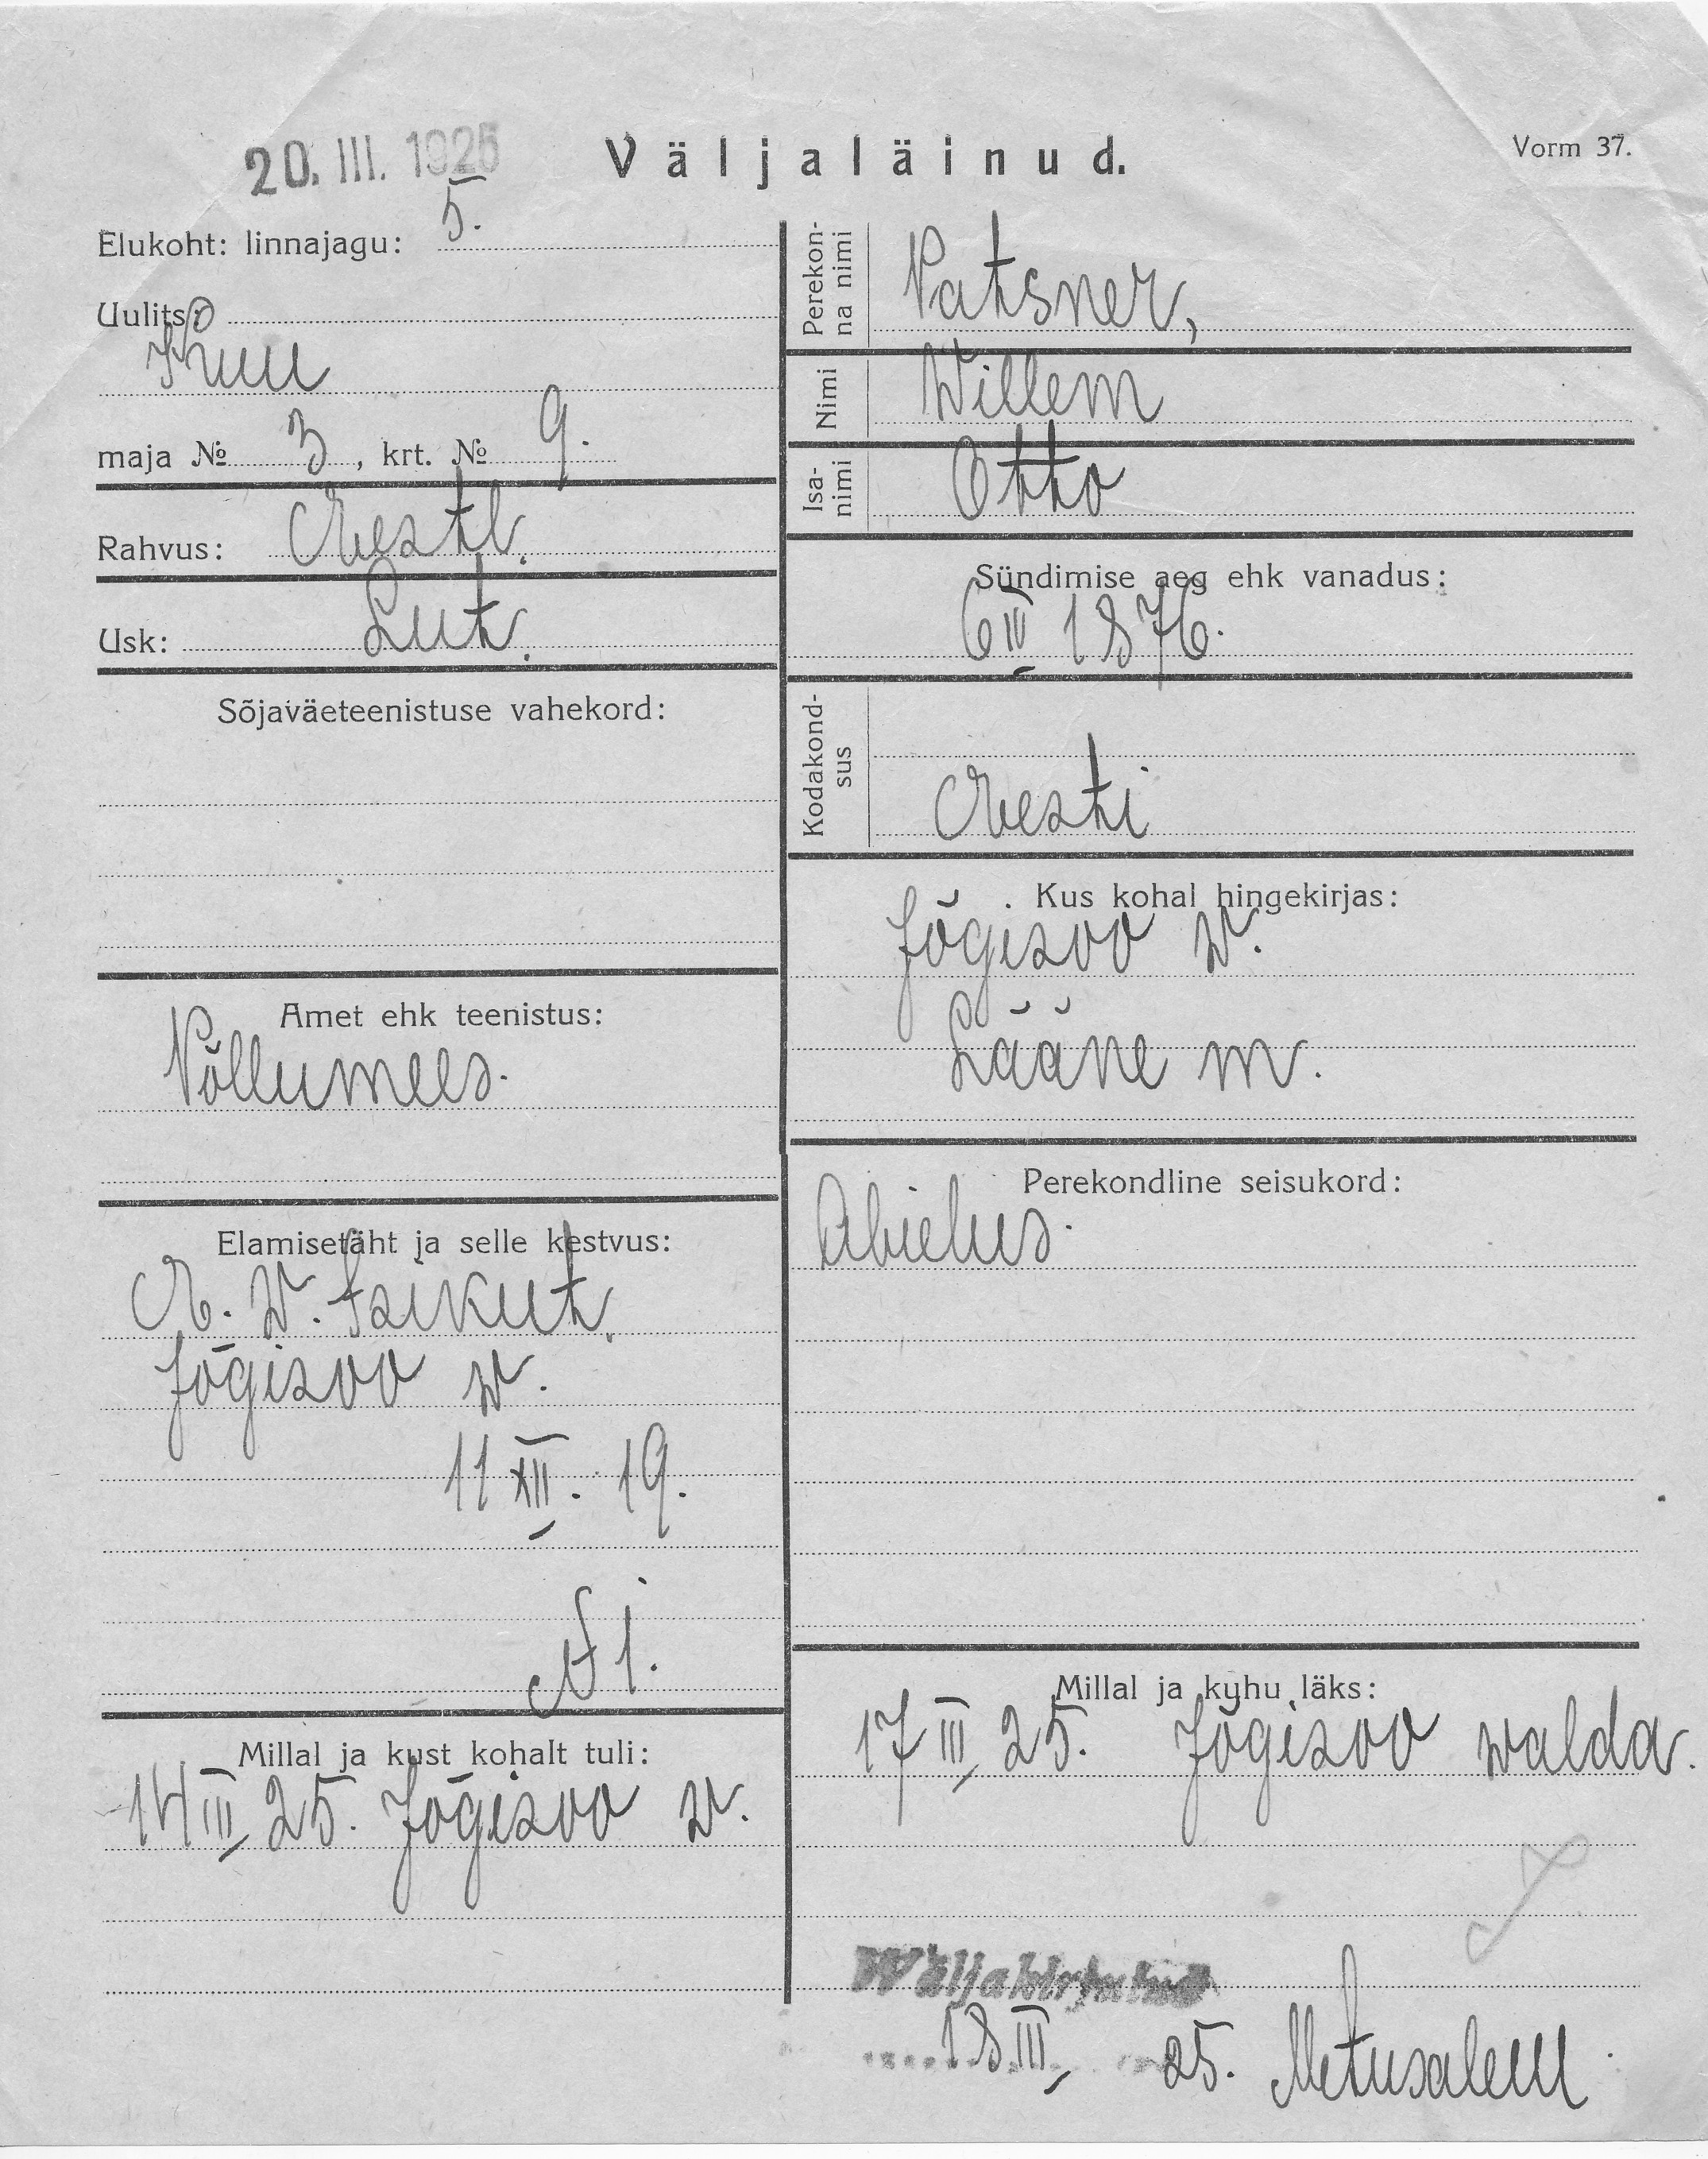 20. III. 1925
Väljaläinud.
Vorm 37.
Elukoht: linnajagu: 5.
Uulits:
Kuu
maja № 3, krt. № 9.
Rahvus: Eestl.
Usk: Lut.
Sõjaväeteenistuse vahekord:
Amet ehk teenistus:
Põllumees.
Elamisetäht ja selle kestvus:
E. W. isikut.
Jõgisoo w.
11 XII. 19.
№ 1.
Millal ja kust kohalt tuli:
14 III 25. Jõgisoo w.
Perekon-
na nimi
Patsner,
Nimi
Willem
Isa-
nimi
Otto
Sündimise aeg ehk vanadus:
6 IV 1876.
Kodakond-
sus
Eesti
Kus kohal hingekirjas:
Jõgisoo w.
Lääne m.
Perekondline seisukord:
Abielus.
Millal ja kuhu läks:
17 III 25. Jõgisoo walda.
Wäljakirjutud
18 III 25. Metusalem